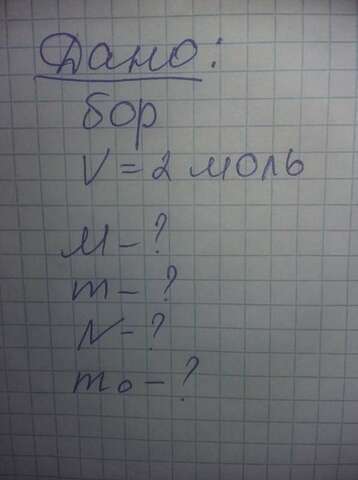 Дано:
бор
V = 2 моль
M - ?
m - ?
N - ?
m₀ - ?